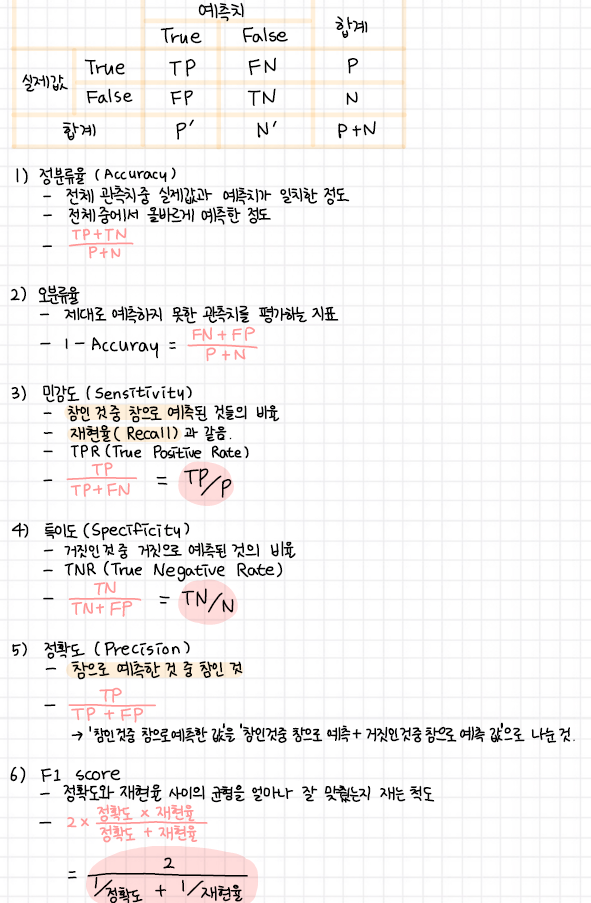 예측치 합계
True False
실제값 True TP FN P
False FP TN N
합계 P′ N′ P+N
1) 정분류율 (Accuracy)
- 전체 관측치중 실제값과 예측치가 일치한 정도
- 전체중에서 올바르게 예측한 정도
- TP+TN / P+N
2) 오분류율
- 제대로 예측하지 못한 관측치를 평가하는 지표
- 1 - Accuray = FN+FP / P+N
3) 민감도 (Sensitivity)
- 참인 것중 참으로 예측된 것들의 비율
- 재현율( Recall) 과 같음.
- TPR (True Positive Rate)
- TP / TP+FN = TP/P
4) 특이도 (Specificity)
- 거짓인것 중 거짓으로 예측된 것의 비율
- TNR (True Negative Rate)
- TN / TN+FP = TN/N
5) 정확도 (Precision)
- 참으로 예측한 것 중 참인 것
- TP / TP + FP
→ '참인것중 참으로예측한 값'을 '참인것중 참으로 예측 + 거짓인것중참으로 예측 값'으로 나눈 것.
6) F1 score
- 정확도와 재현율 사이의 균형을 얼마나 잘 맞췄는지 재는 척도
- 2 × 정확도 × 재현율 / 정확도 + 재현율
= 2 / 1/정확도 + 1/재현율